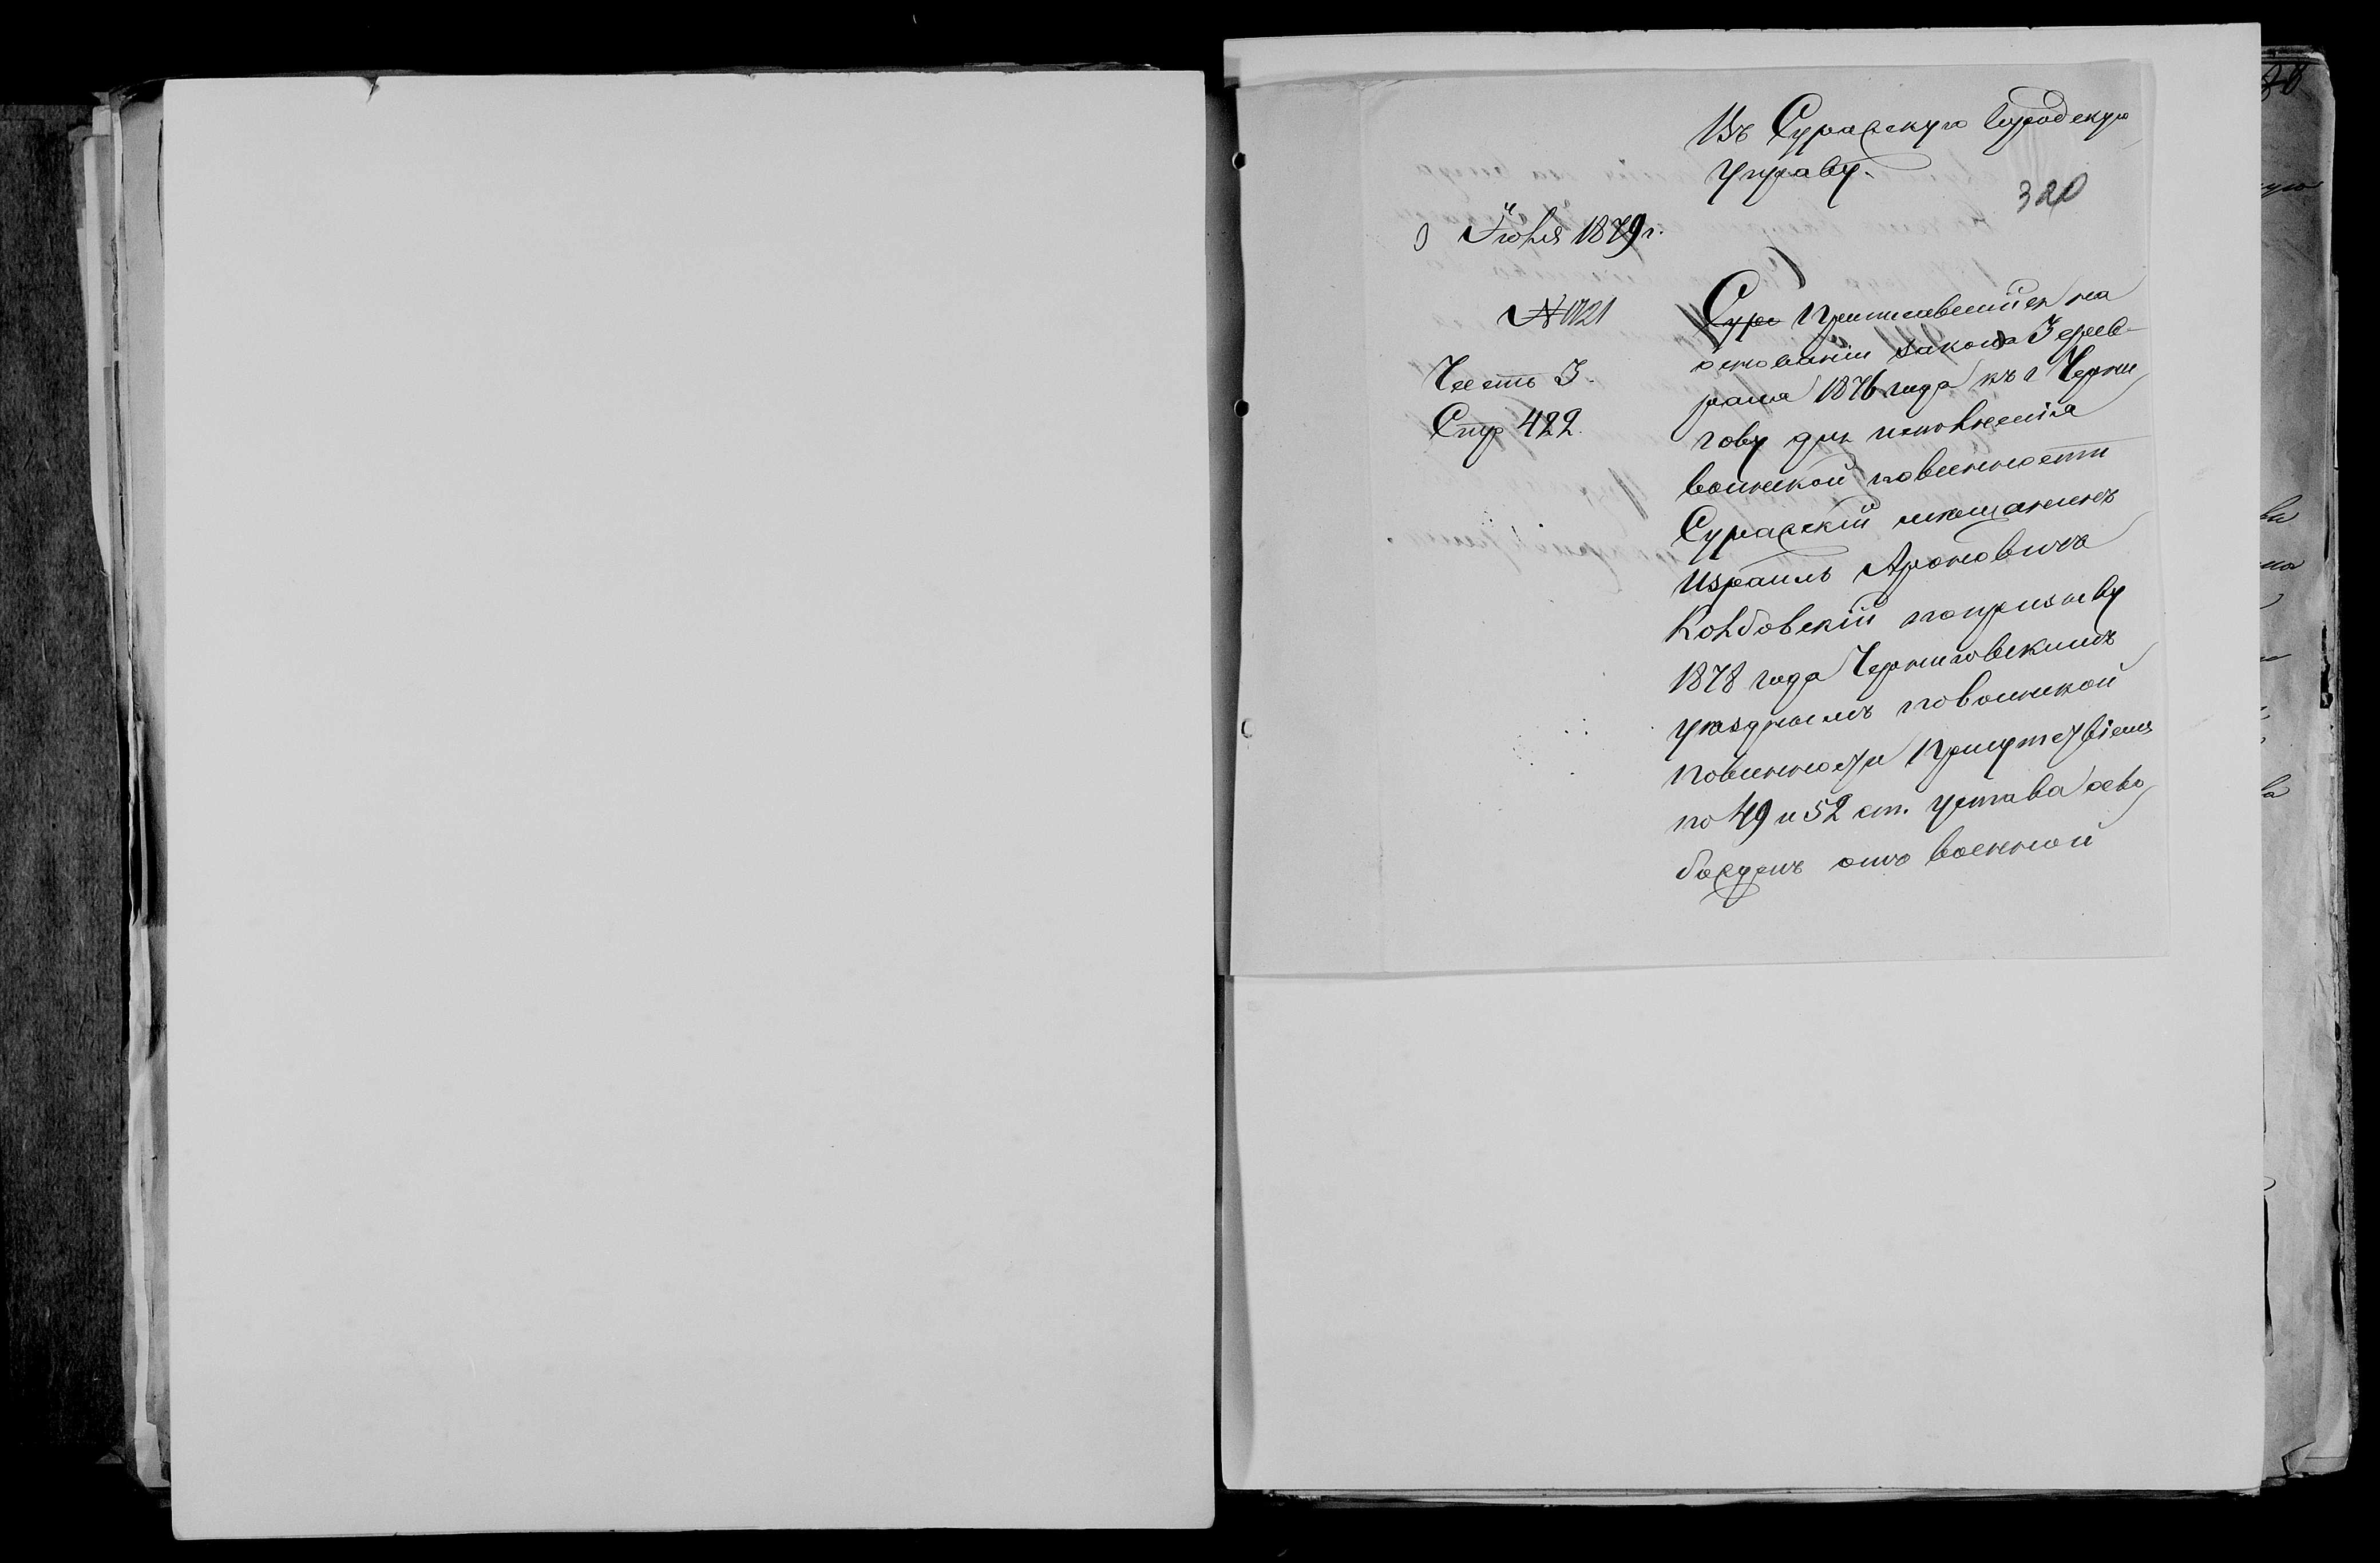 Въ Суражскую Городскую
Управу.
320
Іюня 1879 г.
№ 1721
Часть I.
Стр 422.
Сура Приписавшійся на
основаніи закона 3 фев-
раля 1876 года къ г Черни
гову для исполненія
воинской повинности
Суражскій мещанинъ
Израиль Ароновичъ
Колбовскій по призыву
1878 года Черниговскимъ
уезднымъ по воинской
повинности Присутствіемъ
по 49 и 52 ст. устава осво
божденъ отъ военной